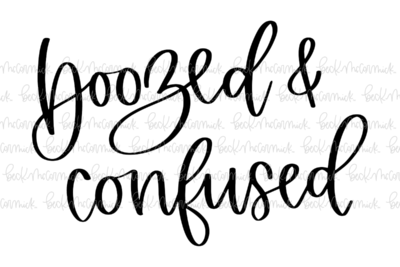 boozed &
confused